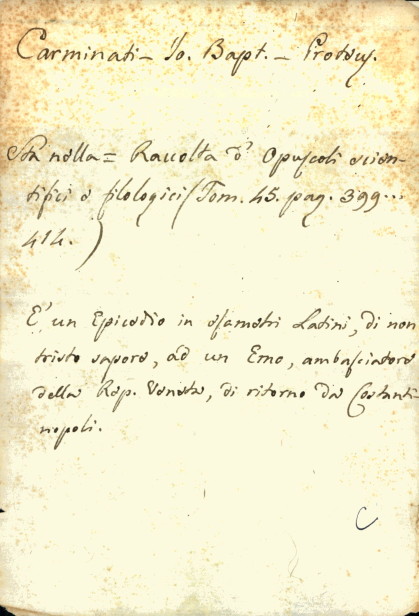 Carminati - Jo. Bapt. - Proteus.
Sta nella = Raccolta d'Opuscoli scien-
tifici e filologici (Tom. 45. pag. 399...
414.)
E' un Epicedio in esametri Latini, di non
tristo sapore, ad un Emo, ambasciatore
della Rep. Veneta, di ritorno da Costanti-
nopoli.
C